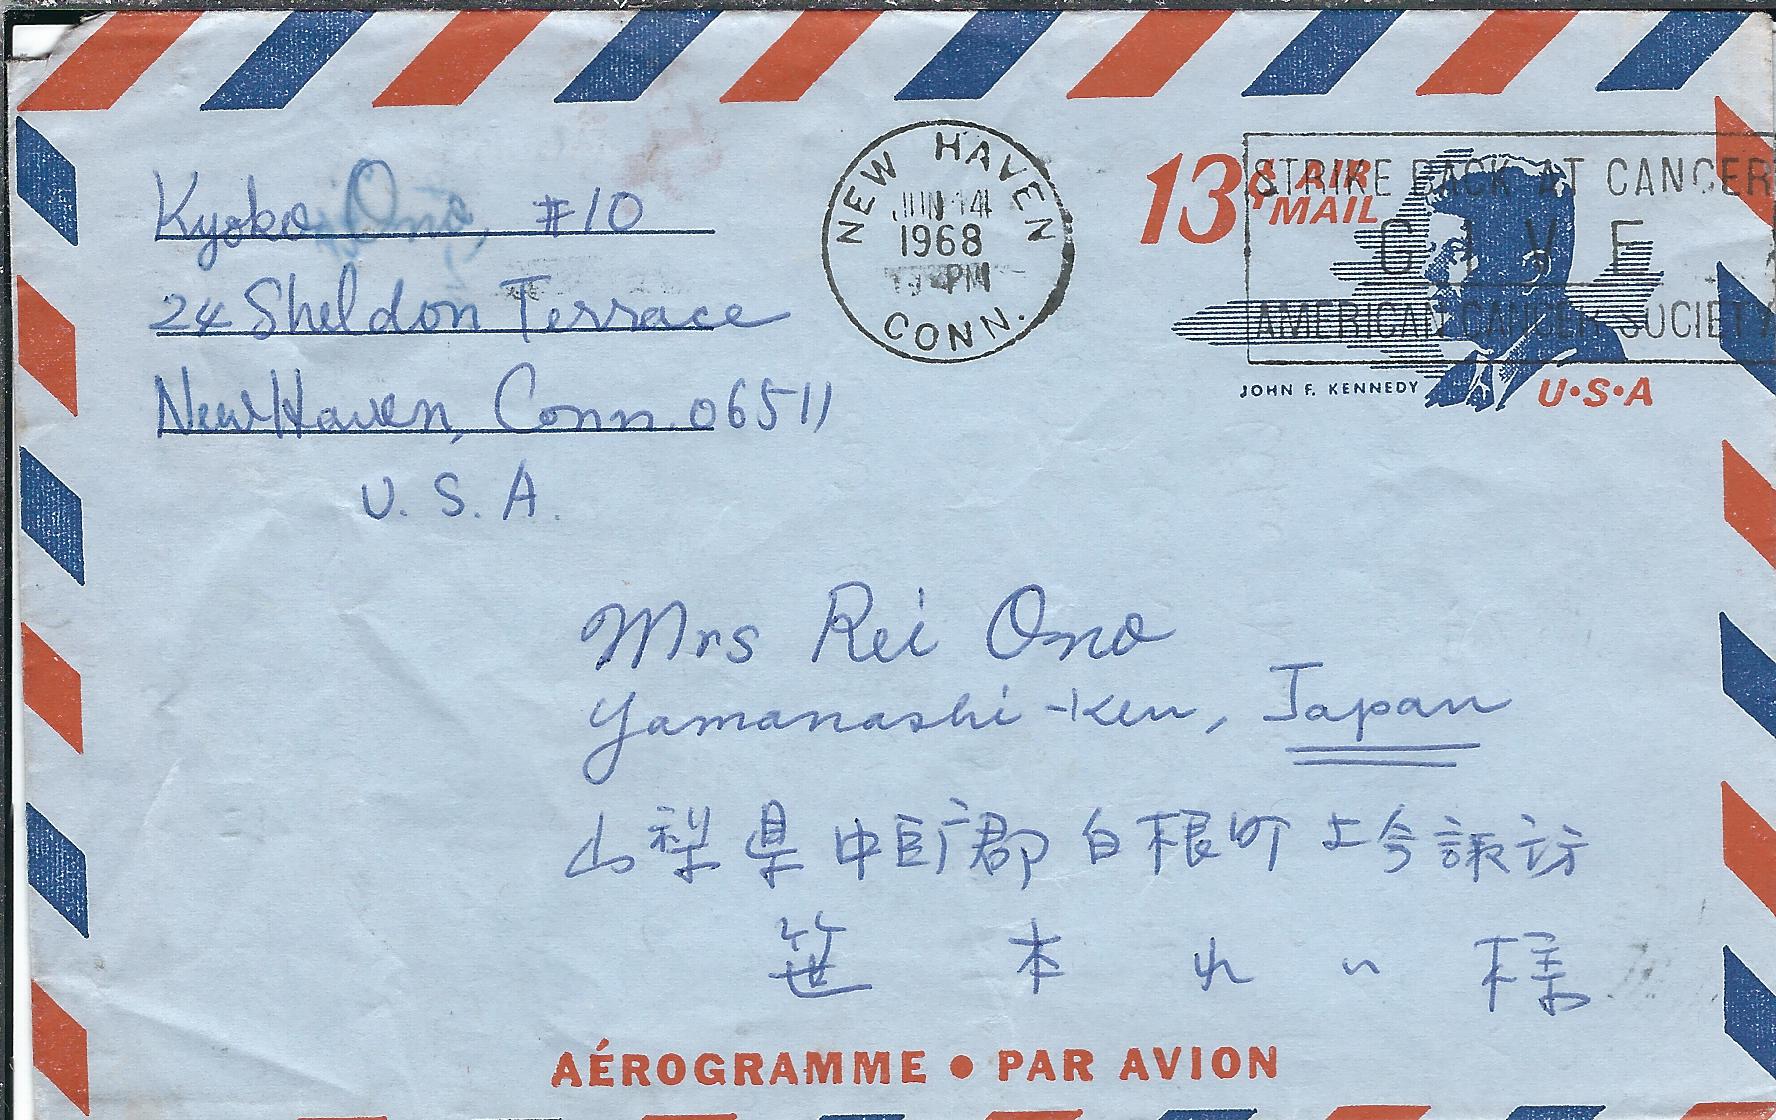 Kyoko Ono, #10
24 Sheldon Terrace
New Haven, Conn. 06511
U. S. A.
NEW HAVEN
JUN 14
1968
PM
CONN.
13¢ AIR MAIL
STRIKE BACK AT CANCER
GIVE
AMERICAN CANCER SOCIETY
JOHN F. KENNEDY
U·S·A
Mrs Rei Ono
Yamanashi-Ken, Japan
山梨県中巨广郡白根町上今諏訪
笹本れい様
AÉROGRAMME • PAR AVION